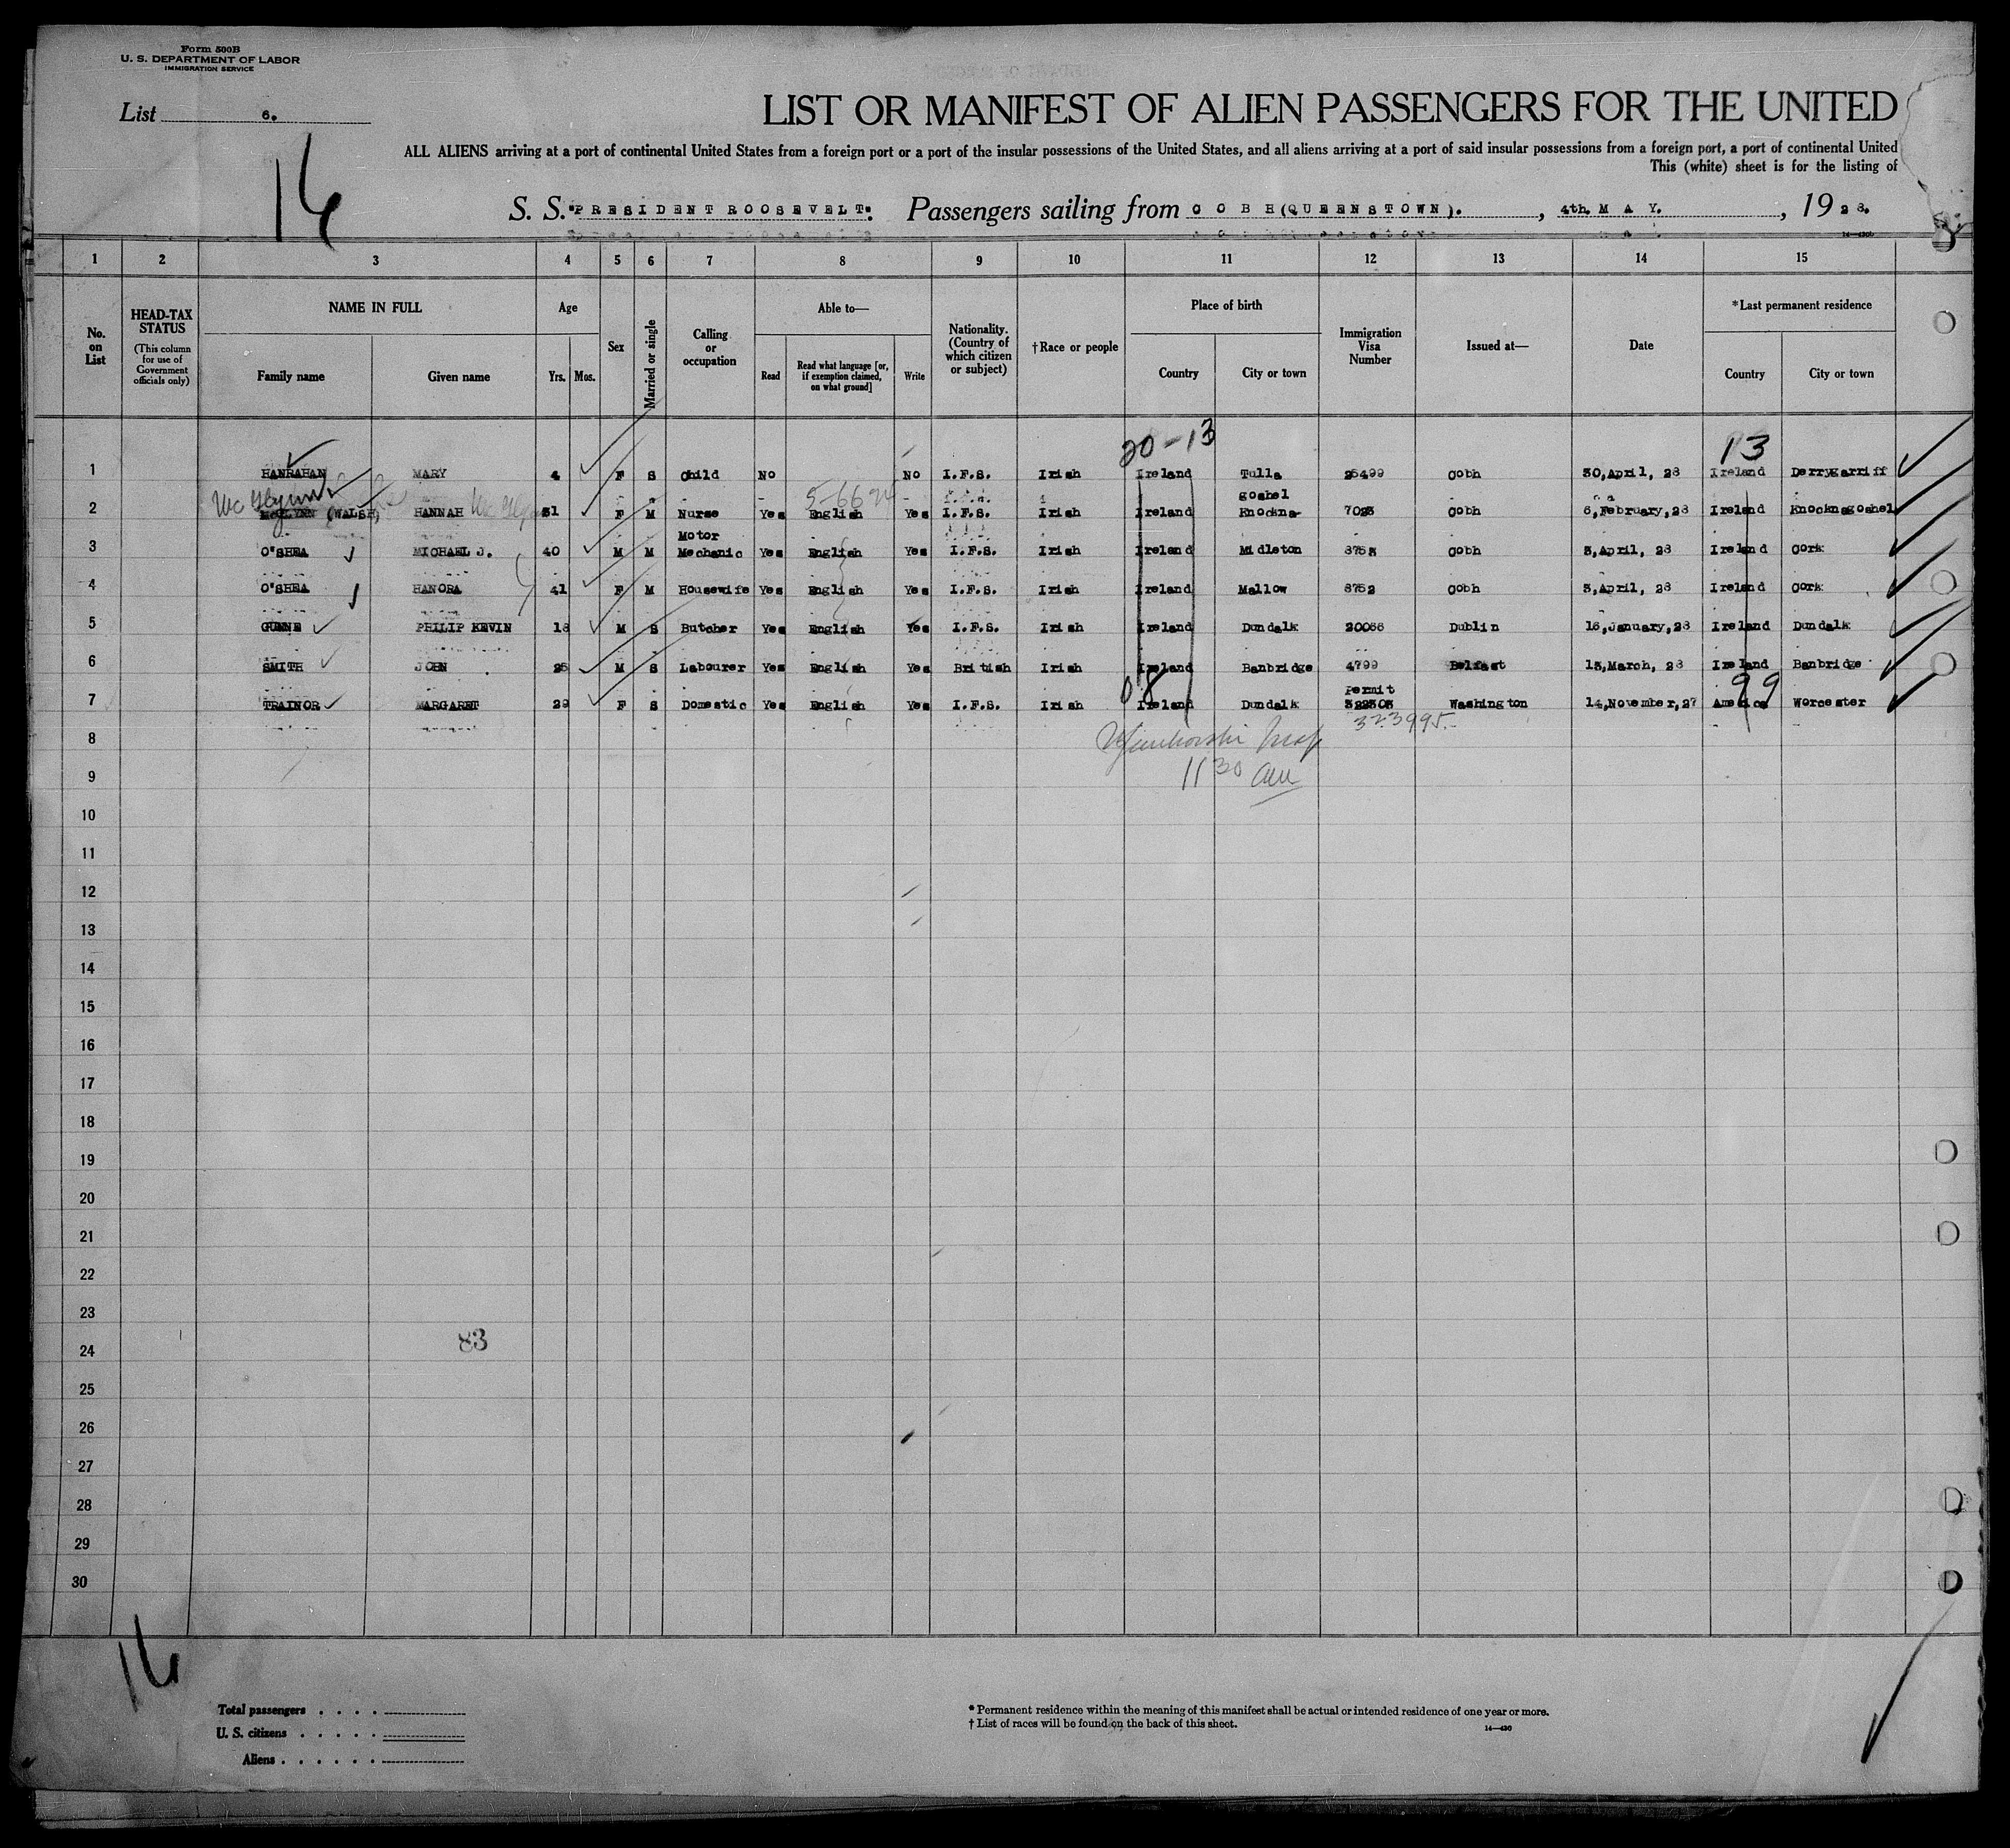 Form 500B
U. S. DEPARTMENT OF LABOR
IMMIGRATION SERVICE
List 6.
16
LIST OR MANIFEST OF ALIEN PASSENGERS FOR THE UNITED
ALL ALIENS arriving at a port of continental United States from a foreign port or a port of the insular possessions of the United States, and all aliens arriving at a port of said insular possessions from a foreign port, a port of continental United
This (white) sheet is for the listing of
S. S. "PRESIDENT ROOSEVELT". Passengers sailing from COBH(QUEENSTOWN). , 4th. MAY. , 1928.
1 2 3 4 5 6 7 8 9 10 11 12 13 14 15
No. on List
HEAD-TAX STATUS (This column for use of Government officials only)
NAME IN FULL Family name Given name
Age Yrs. Mos.
Sex
Married or single
Calling or occupation
Able to— Read Read what language [or, if exemption claimed, on what ground] Write
Nationality. (Country of which citizen or subject)
†Race or people
Place of birth Country City or town
Immigration Visa Number
Issued at—
Date
*Last permanent residence Country City or town
20-13 13
1 HANRAHAN MARY 4 F S Child No No I.F.S. Irish Ireland Tulla 25499 Cobh 30,April, 28 Ireland Derrykarriff
Mc Glynn 5-6694 goshel
2 McGLYNN (WALSH) HANNAH 31 F M Nurse Yes English Yes I.F.S. Irish Ireland Knockna- 7023 Cobh 6,February,28 Ireland Knocknagoshel
Motor
3 O'SHEA MICHAEL J. 40 M M Mechanic Yes English Yes I.F.S. Irish Ireland Midleton 8753 Cobh 3,April, 28 Ireland Cork
4 O'SHEA HANORA 41 F M Housewife Yes English Yes I.F.S. Irish Ireland Mallow 8752 Cobh 3,April, 28 Ireland Cork
5 GUNNE PHILIP KEVIN 18 M S Butcher Yes English Yes I.F.S. Irish Ireland Dundalk 20066 Dublin 16,January,28 Ireland Dundalk
6 SMITH JOHN 25 M S Labourer Yes English Yes British Irish Ireland Banbridge 4799 Belfast 13,March, 28 Ireland Banbridge
08 Permit 99
7 TRAINOR MARGARET 29 F S Domestic Yes English Yes I.F.S. Irish Ireland Dundalk 322303 Washington 14,November,27 America Worcester
323995.
8
11 30 am
9
10
11
12
13
14
15
16
17
18
19
20
21
22
23
24 83
25
26
27
28
29
30
16
Total passengers
U. S. citizens
Aliens
* Permanent residence within the meaning of this manifest shall be actual or intended residence of one year or more.
† List of races will be found on the back of this sheet.
14—430